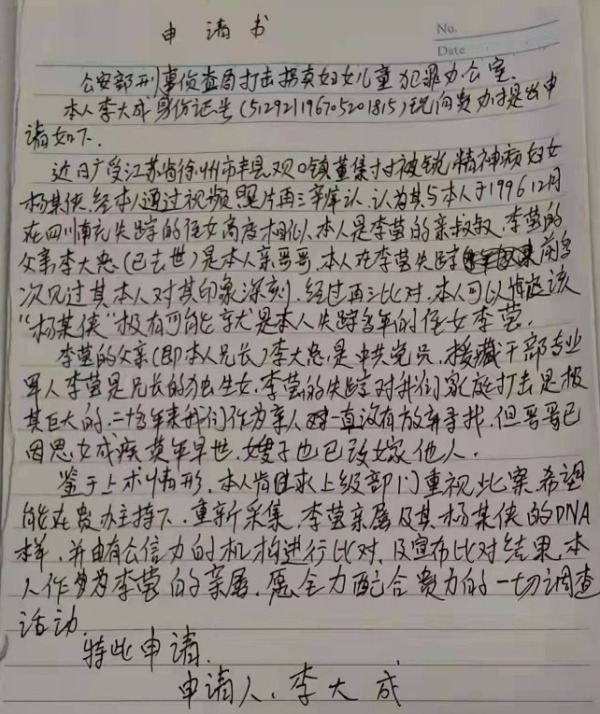 申请书
No.
Date
公安部刑事侦查局打击拐卖妇女儿童犯罪办公室.
本人李大成身份证号(512921196705201815)现向贵办提出申
请如下.
近日广受江苏省徐州市丰县欢口镇董集村被锁精神病妇女
杨某侠.经本人通过视频.照片再三辨认.认为其与本人于1996 12月
在四川南充失踪的侄女高度相似.本人是李莹的亲叔叔.李莹的
父亲李大忠(已去世)是本人亲哥哥.本人在李莹失踪前多
次见过其本人对其印象深刻.经过再三比对.本人可以确定该
"杨某侠"极有可能就是本人失踪多年的侄女李莹.
李莹的父亲(即本人兄长)李大忠.是中共党员.援藏干部专业
军人李莹是兄长的独生女.李莹的失踪对我们家庭打击是极
其巨大的.二十多年来我们作为亲人一直没有放弃寻找.但哥哥已
因思女成疾英年早世.嫂子也已改嫁他人.
鉴于上术情形.本人肯求上级部门重视此案.希望
能在贵办主持下.重新采集.李莹亲属及其杨某侠的DNA
样.并由有公信力的机构进行比对.及宣布比对结果.本
人作为李莹的亲属.愿全力配合贵方的一切调查
活动.
特此申请.
申请人.李大成